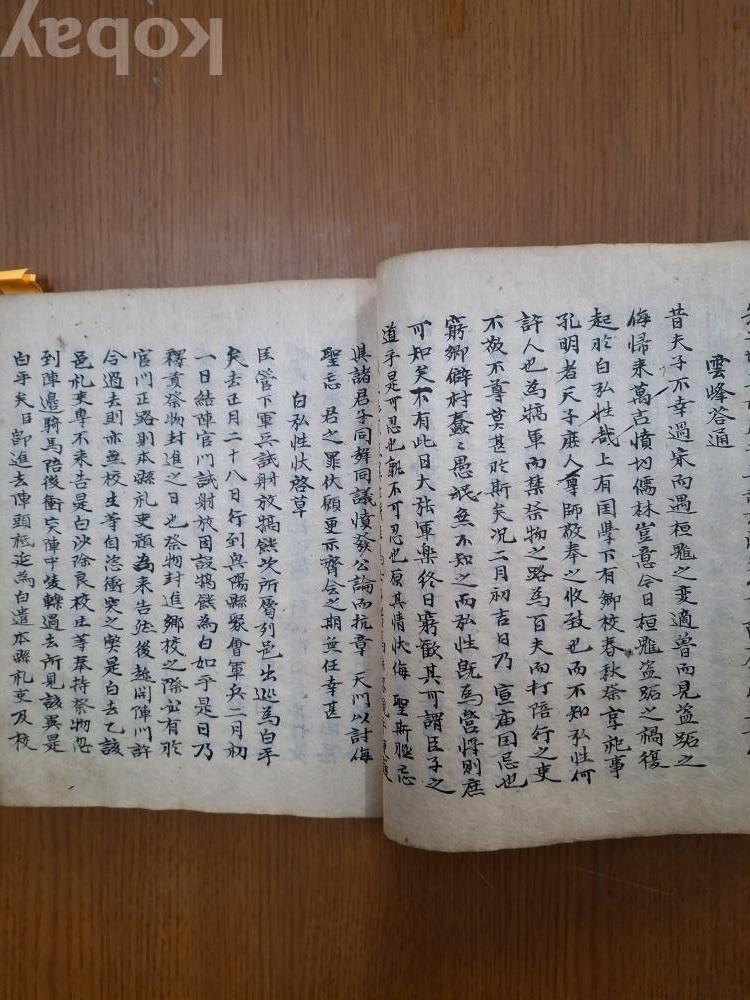 kobay
雲峰答通
昔夫子不幸過宋而遇桓魋之變適魯而見盜跖之
侮歸來萬古憤切儒林豈意今日桓魋盜跖之禍復
起於白弘性哉上有国學下有鄉校春秋祭享祀事
孔明者天子庶人尊師敬奉之收致也而不知弘性何
許人也為犒軍而禁祭物之路為百夫而打陪行之吏
不敬不尊莫甚於斯矣况二月初吉日乃 宣庙国忌也
窮鄉僻村蠢〻愚氓無不知之而弘性既為營將則庶
可知矣不有此日大張軍樂終日窮歡其可謂臣子之
道乎是可忍也孰不可忍也原其情状侮 聖斯極忌
與諸君子同聲同議憤發公論而抗章 天門以討侮
聖忘 君之罪伏願更示齊会之期無任幸甚
白弘性状啓草
臣營下軍兵試射放犒饋次所屬列邑出巡為白乎
矣去正月二十八日行到與陽縣聚會軍兵二月初
一日結陣官門試射放因設犒饋為白如乎是日乃
釋奠祭物封進之日也祭物封進鄉校之際必有於
官門正路則本縣礼吏預為来告然後趍開陣門許
令過去則亦無校生等自恣衝突之獘是白去乙該
邑礼吏専不来告是白沙除良校生等某持祭物忽
到陣邊騎馬陪後衝突陣中蹂轢過去所見該異是
白乎矣自卽進去陣頭 為白遣本縣礼吏及校